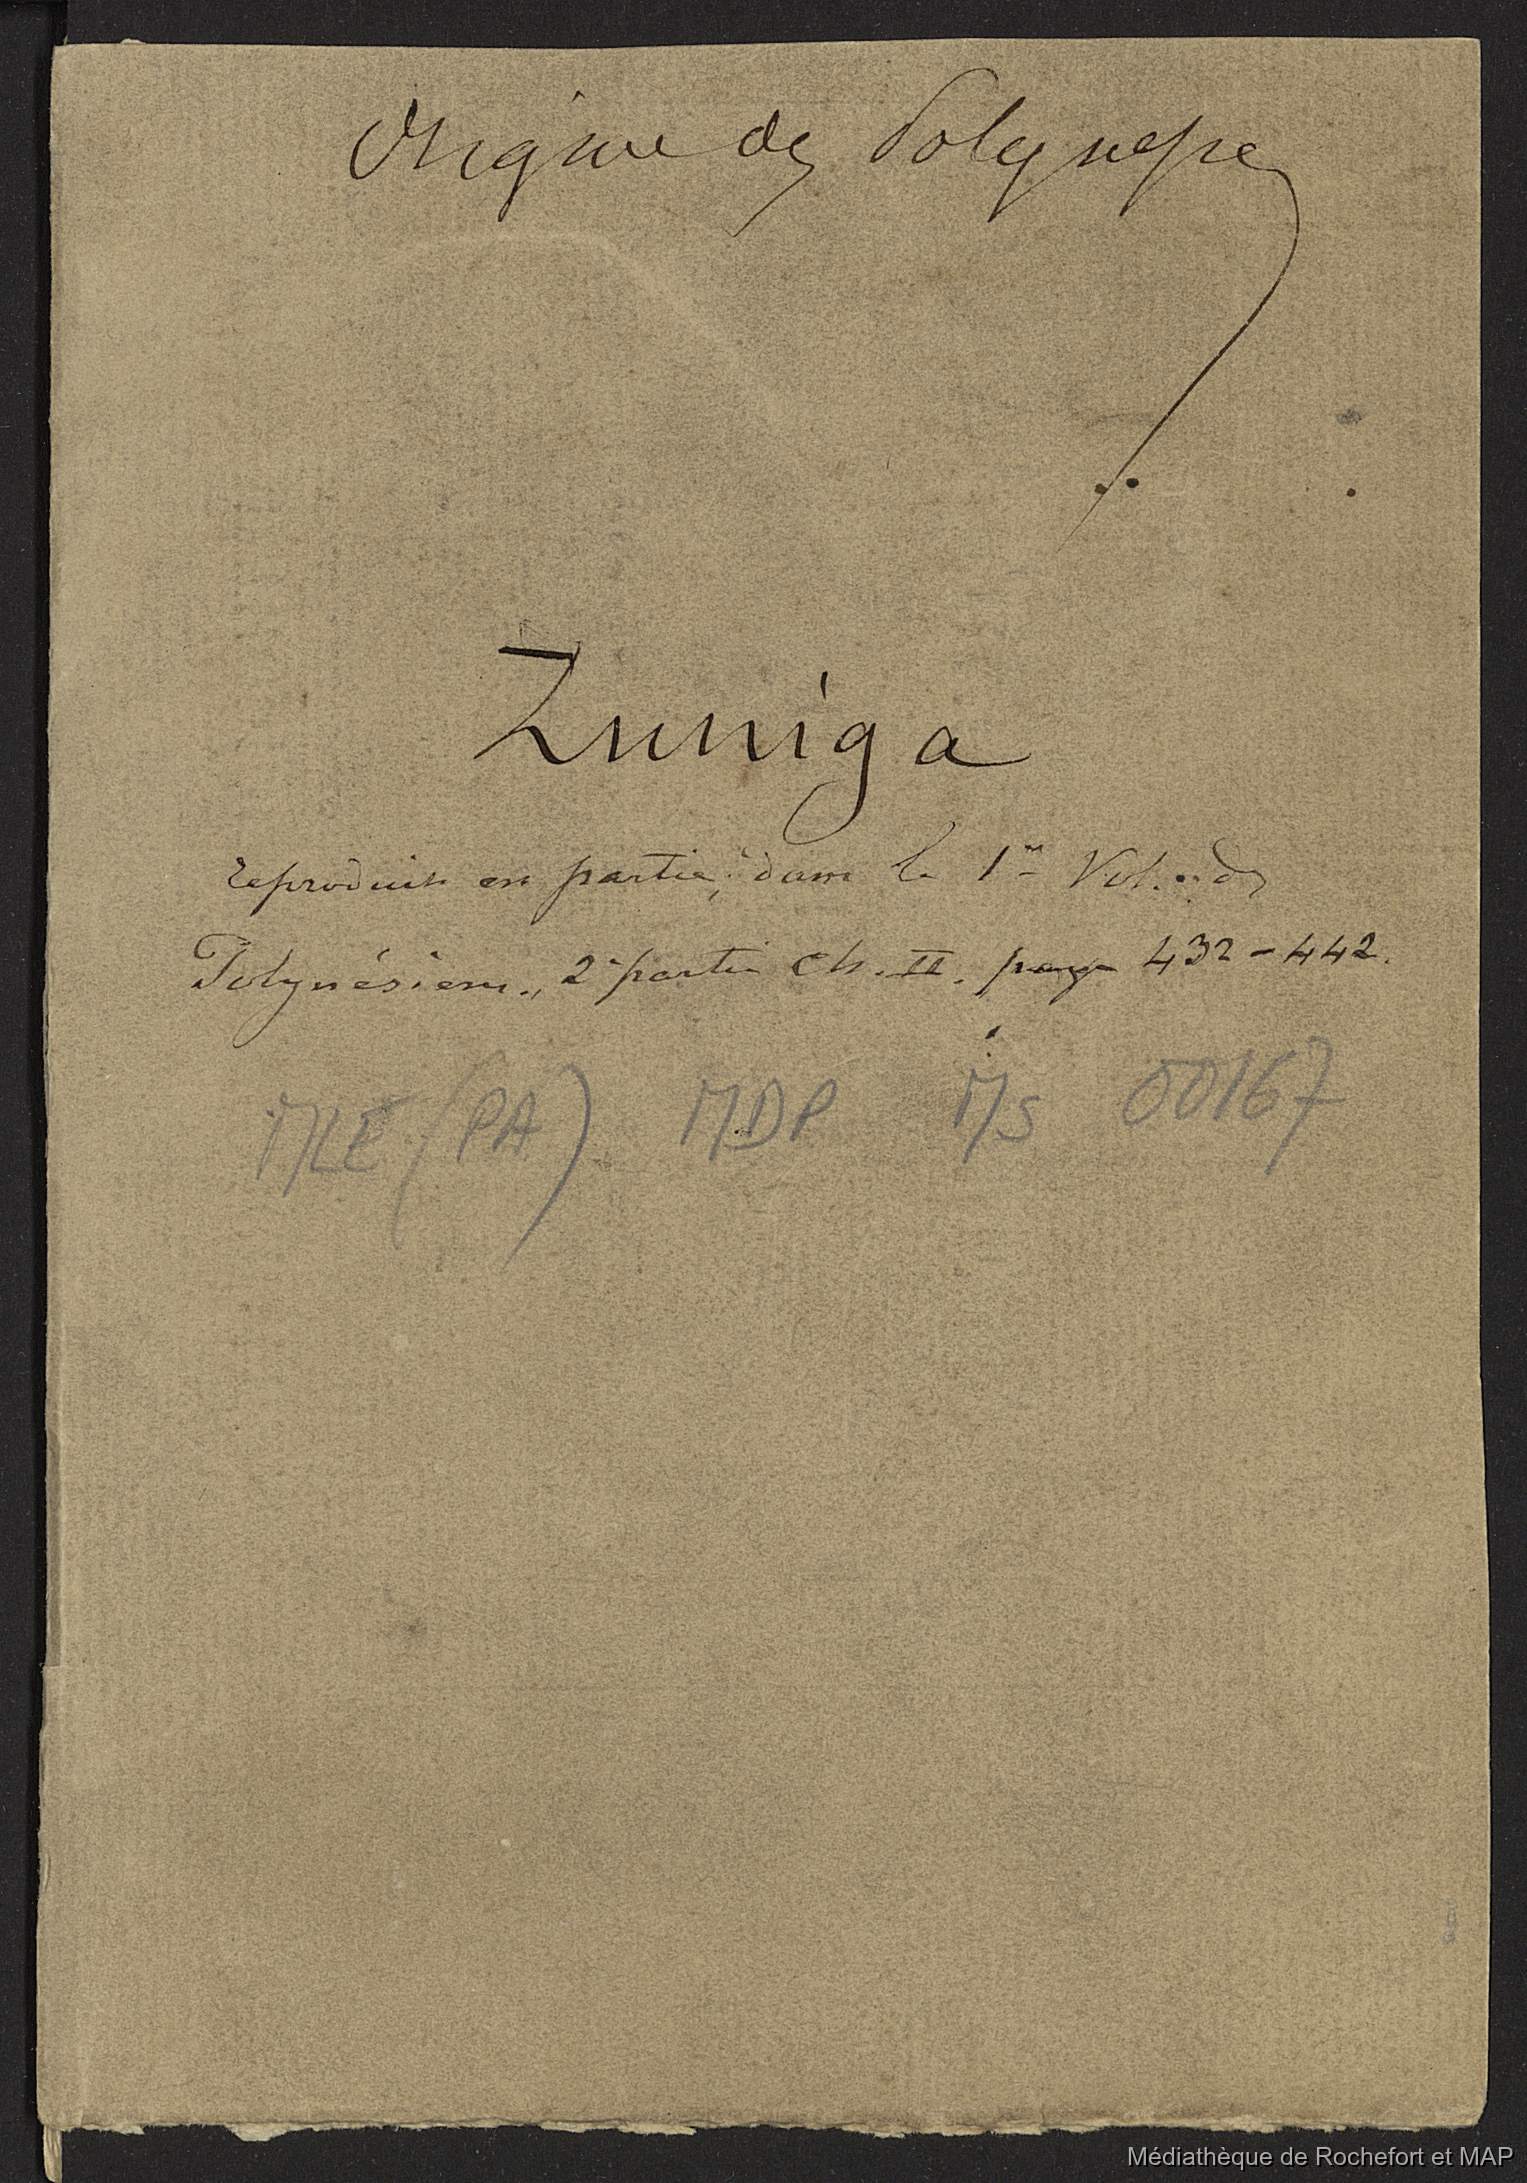 Origine des Polynésiens
Zuniga
reproduit en partie, dans le 1er Vol. des
Polynésiens, 2e partie Ch. II. page 432-442.
MLE (PA) MDP Ms 00167
Médiathèque de Rochefort et MAP